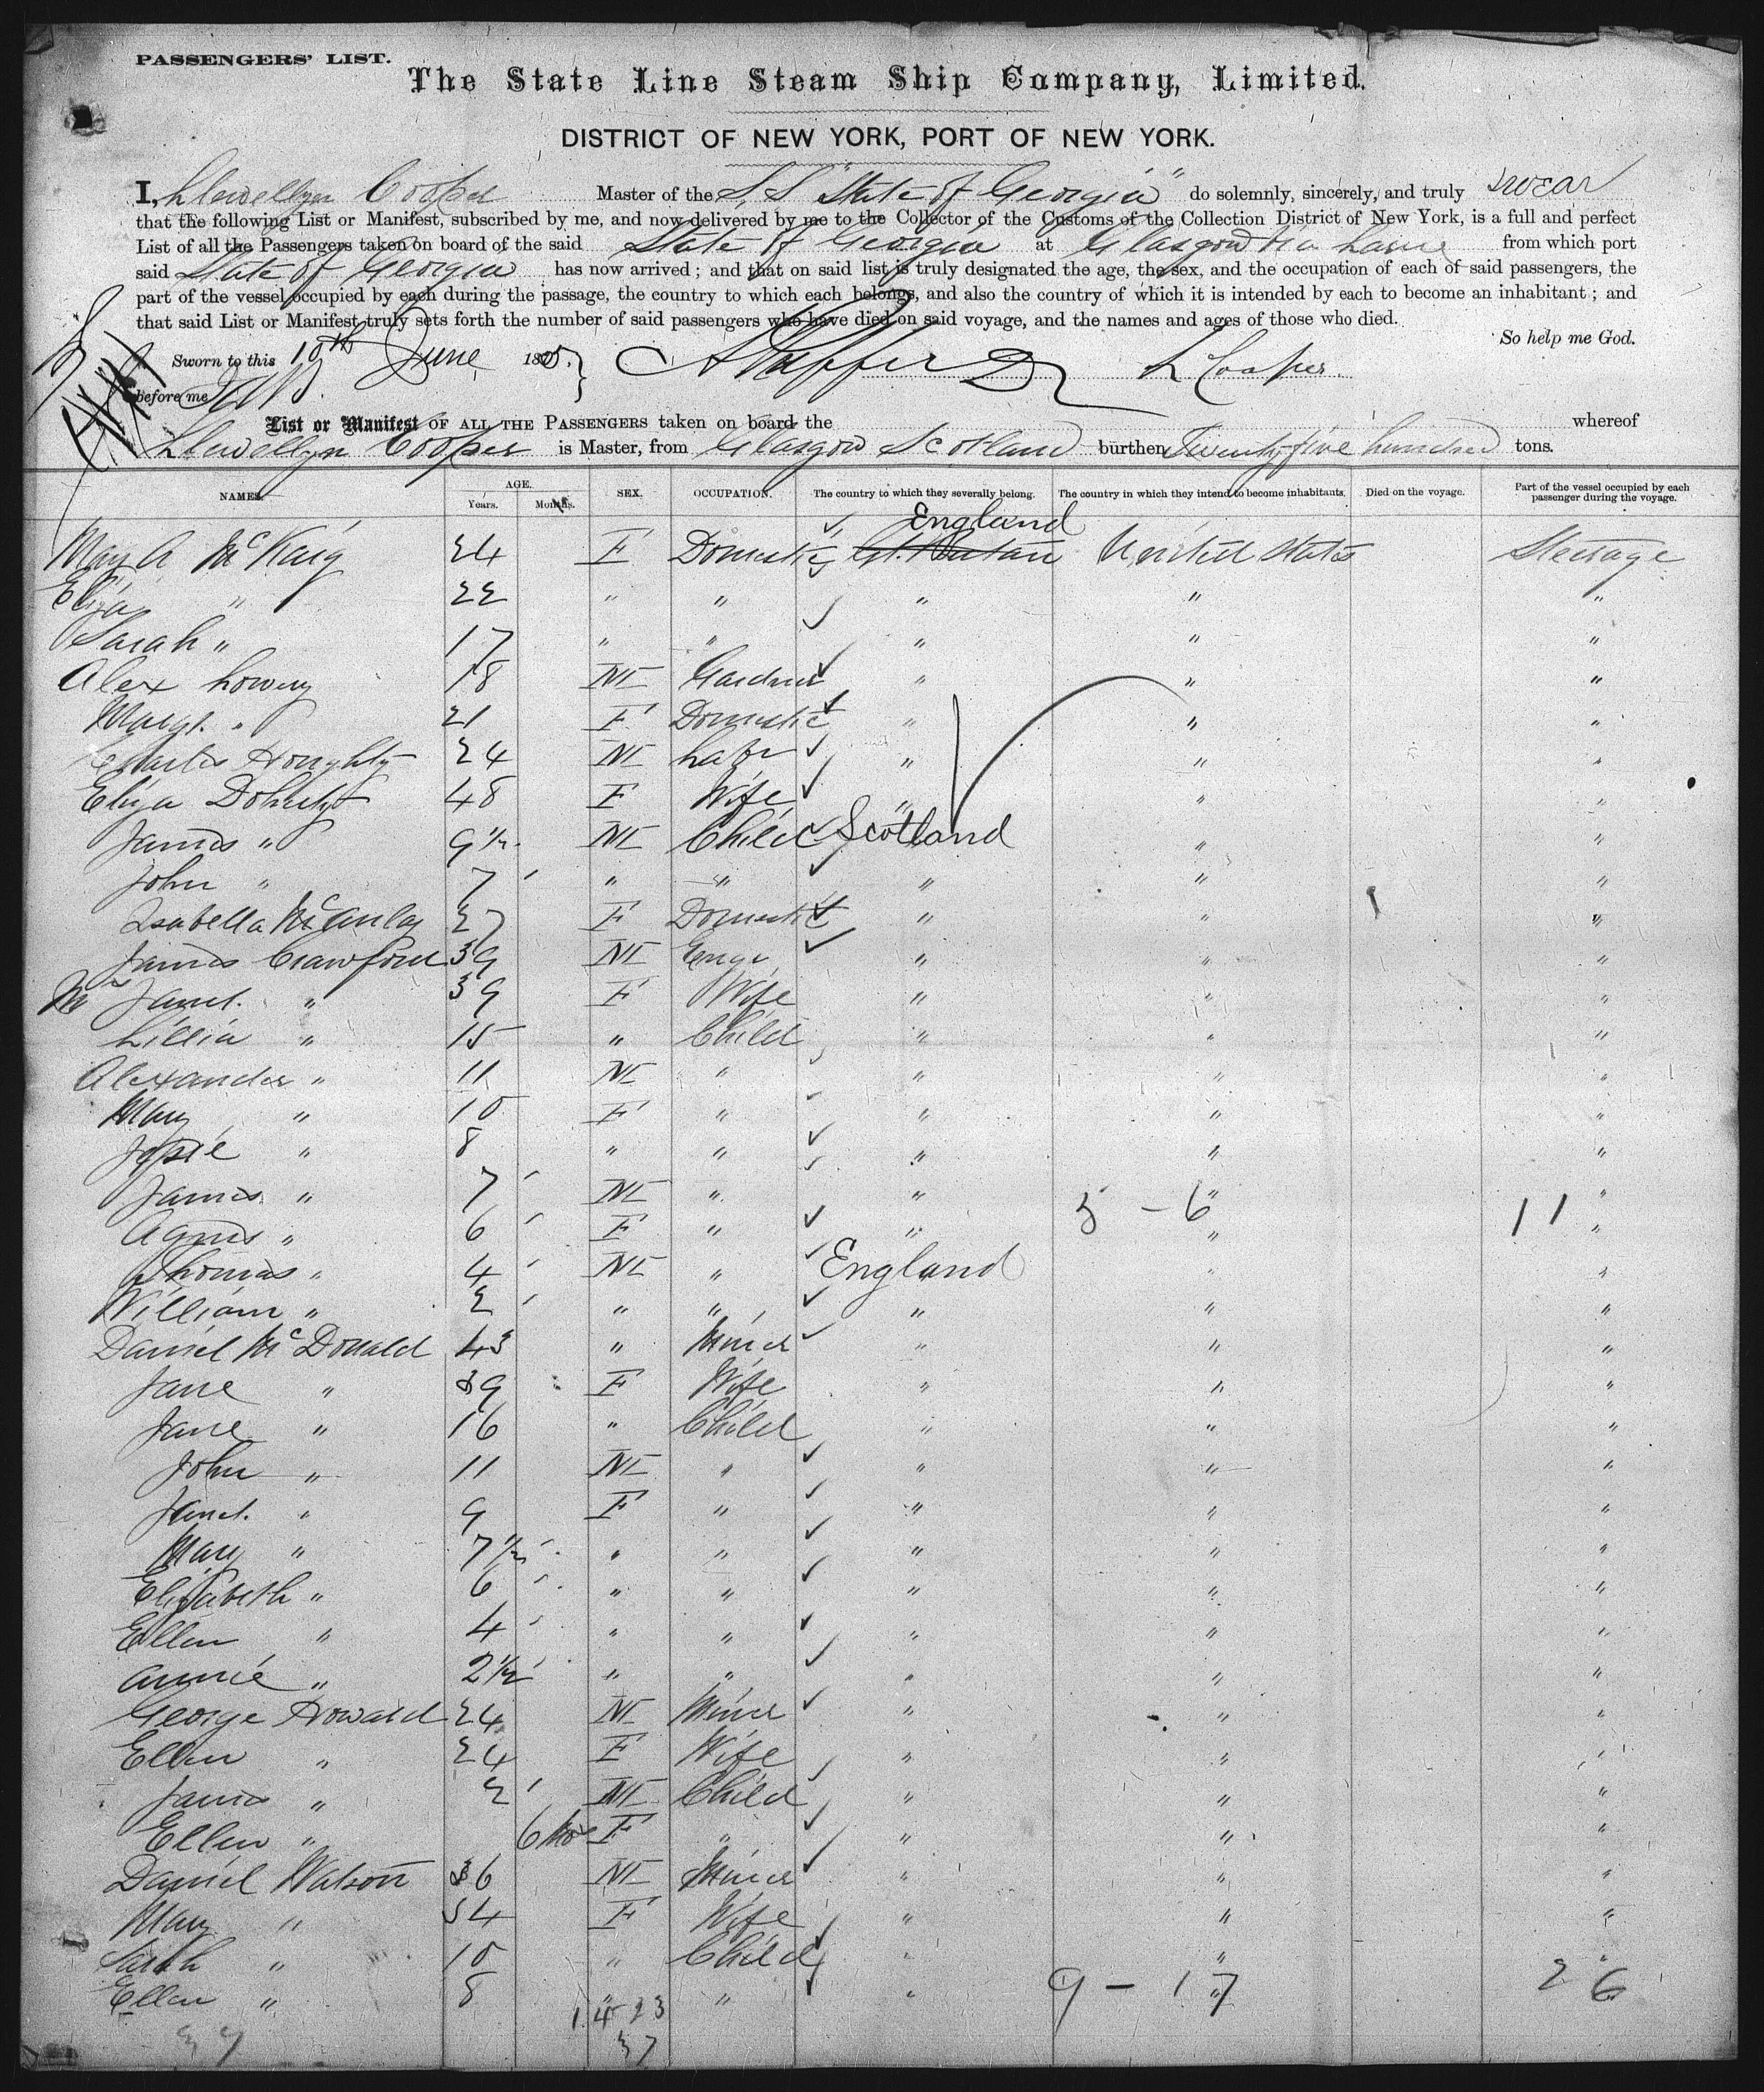 PASSENGERS' LIST.
The State Line Steam Ship Company, Limited.
DISTRICT OF NEW YORK, PORT OF NEW YORK.
I, Llewellyn Cooper Master of the S.S "State of Georgia" do solemnly, sincerely, and truly swear
that the following List or Manifest, subscribed by me, and now delivered by me to the Collector of the Customs of the Collection District of New York, is a full and perfect
List of all the Passengers taken on board of the said State of Georgia at Glasgow via Larne from which port
said State of Georgia has now arrived; and that on said list is truly designated the age, the sex, and the occupation of each of said passengers, the
part of the vessel occupied by each during the passage, the country to which each belongs, and also the country of which it is intended by each to become an inhabitant; and
that said List or Manifest truly sets forth the number of said passengers who have died on said voyage, and the names and ages of those who died.
So help me God.
Sworn to this June 188 L Cooper
before me
List or Manifest OF ALL THE PASSENGERS taken on board the whereof
Llewellyn Cooper is Master, from Glasgow Scotland burthen Twenty five hundred tons.
NAMES. AGE. SEX. OCCUPATION. The country to which they severally belong. The country in which they intend to become inhabitants. Died on the voyage. Part of the vessel occupied by each passenger during the voyage.
Years. Months.
England
Mary A McKaig 24 F Domestic Gt. Britain United States Steerage
Eliza " 22 " " " " "
Sarah " 17 " " " " "
Alex Lowery 18 M Gardner " " "
Margt. " 21 F Domestic " " "
Charles Houghty 24 M Labr " " "
Eliza Doherty 48 F Wife " " "
James " 9 1/2 M Child Scotland " "
John " 7 " " " " "
Isabella McAulay 27 F Domestic " " "
James Crawford 39 M Engr " " "
Janet. " 39 F Wife " " "
Lillia " 15 " Child " " "
Alexander " 11 M " " " "
Mary " 10 F " " " "
Josie " 8 " " " " "
James " 7 M " " " "
5 - 6 11
Agnes " 6 F " " " "
Thomas " 4 M " England " "
William " 2 " " " " "
Daniel McDonald 43 " Miner " " "
Jane " 39 F Wife " " "
Jane " 16 " Child " " "
John " 11 M " " " "
Janet. " 9 F " " " "
Mary " 7 1/2 " " " " "
Elizabeth " 6 " " " " "
Ellen " 4 " " " " "
Annie " 2 1/2 " " " " "
George Howard 24 M Miner " " "
Ellen " 24 F Wife " " "
James " 2 M Child " " "
Ellen " 6 Mos F " " " "
Daniel Watson 36 M Miner " " "
Mary " 34 F Wife " " "
Sarah " 10 " Child " " "
Ellen " 8 " " " " "
9 - 17 26
14 23
37